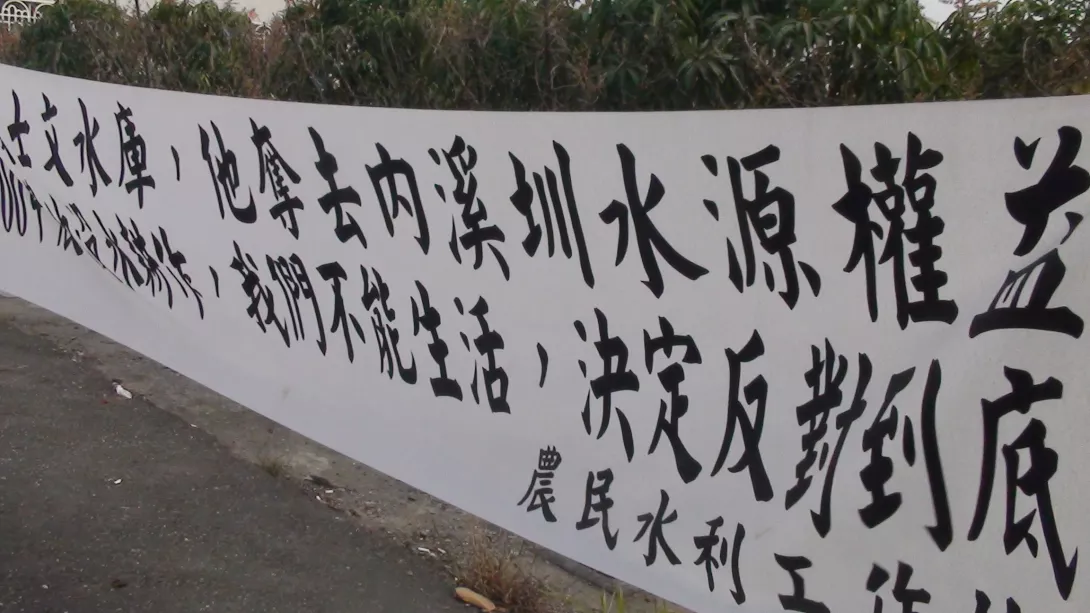 士文水庫，他奪去內溪圳水源權益
00甲沒水耕作，我們不能生活，決定反對到底
農民水利工作